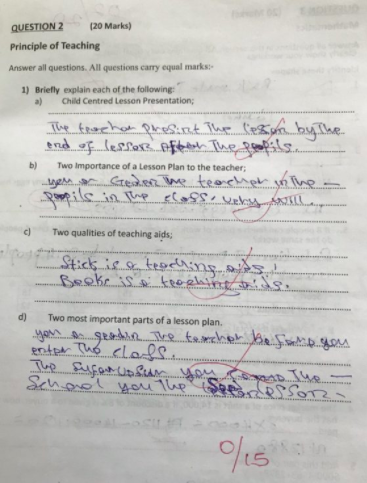 QUESTION 2 (20 Marks)
Principle of Teaching
Answer all questions. All questions carry equal marks:-
1) Briefly explain each of the following:
a) Child Centred Lesson Presentation;
The teacher presint The lesson by The
end of lessor After The pupils.
b) Two Importance of a Lesson Plan to the teacher;
you or The teacher in The
pupils in The class. very will.
c) Two qualities of teaching aids;
Stick is a teaching aids,
Books is a teaching aids.
d) Two most important parts of a lesson plan.
you or The teacher you
enter The class.
The you The
School you The lessor
0/15